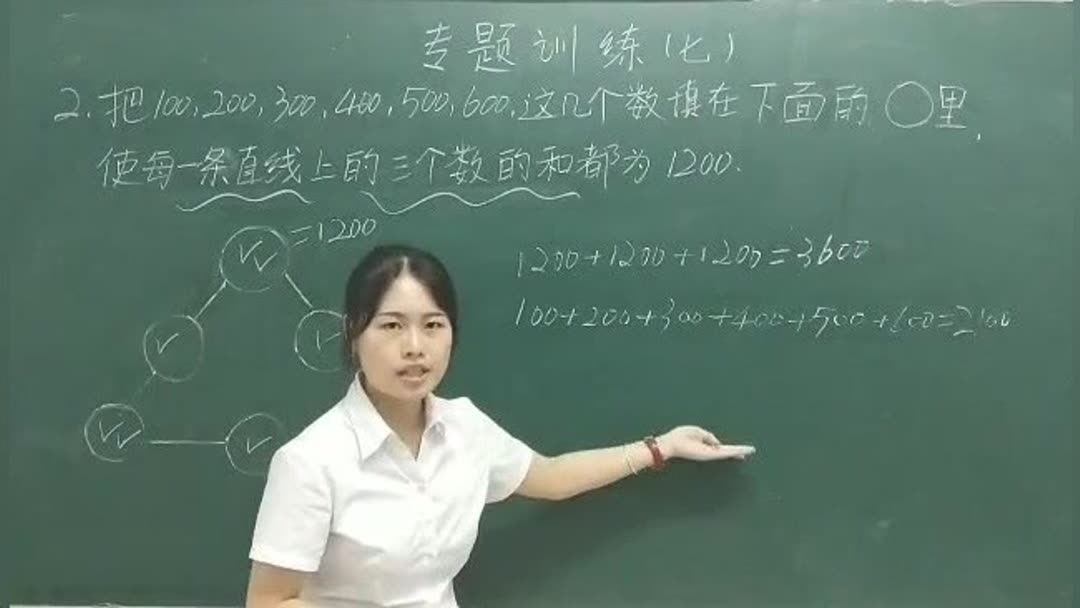 专题训练(七)
2.把100,200,300,400,500,600,这几个数填在下面的〇里,
使每一条直线上的三个数的和都为1200.
=1200
1200+1200+1200=3600
100+200+300+400+500+600=2100